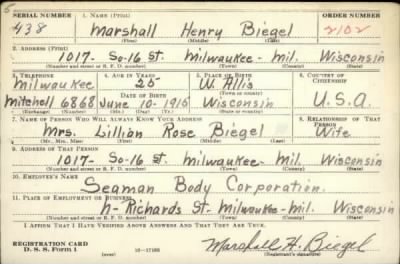 5
SERIAL NUMBER 1. NAME (Print) ORDER NUMBER
438 Marshall Henry Biegel 2102
(First) (Middle) (Last)
2. ADDRESS (Print)
1017- So-16 St. Milwaukee- Mil. Wisconsin
(Number and street or R. F. D. number) (Town) (County) (State)
3. TELEPHONE 4. AGE IN YEARS 5. PLACE OF BIRTH 6. COUNTRY OF CITIZENSHIP
Milwaukee 25 W Allis
DATE OF BIRTH (Town or county)
Mitchell 6868 June 10-1915 Wisconsin U.S.A.
(Exchange) (Number) (Mo.) (Day) (Yr.) (State or country)
7. NAME OF PERSON WHO WILL ALWAYS KNOW YOUR ADDRESS 8. RELATIONSHIP OF THAT PERSON
Mrs. Lillian Rose Biegel Wife
(Mr., Mrs., Miss) (First) (Middle) (Last)
9. ADDRESS OF THAT PERSON
1017- So-16 St. Milwaukee- Mil. Wisconsin
(Number and street or R. F. D. number) (Town) (County) (State)
10. EMPLOYER'S NAME
Seaman Body Corporation.
11. PLACE OF EMPLOYMENT OR BUSINESS
N- Richards St- Milwaukee- Mil. Wisconsin
(Number and street or R. F. D. number) (Town) (County) (State)
I AFFIRM THAT I HAVE VERIFIED ABOVE ANSWERS AND THAT THEY ARE TRUE.
REGISTRATION CARD
D. S. S. Form 1 (over) Marshall H. Biegel
(Registrant's signature)